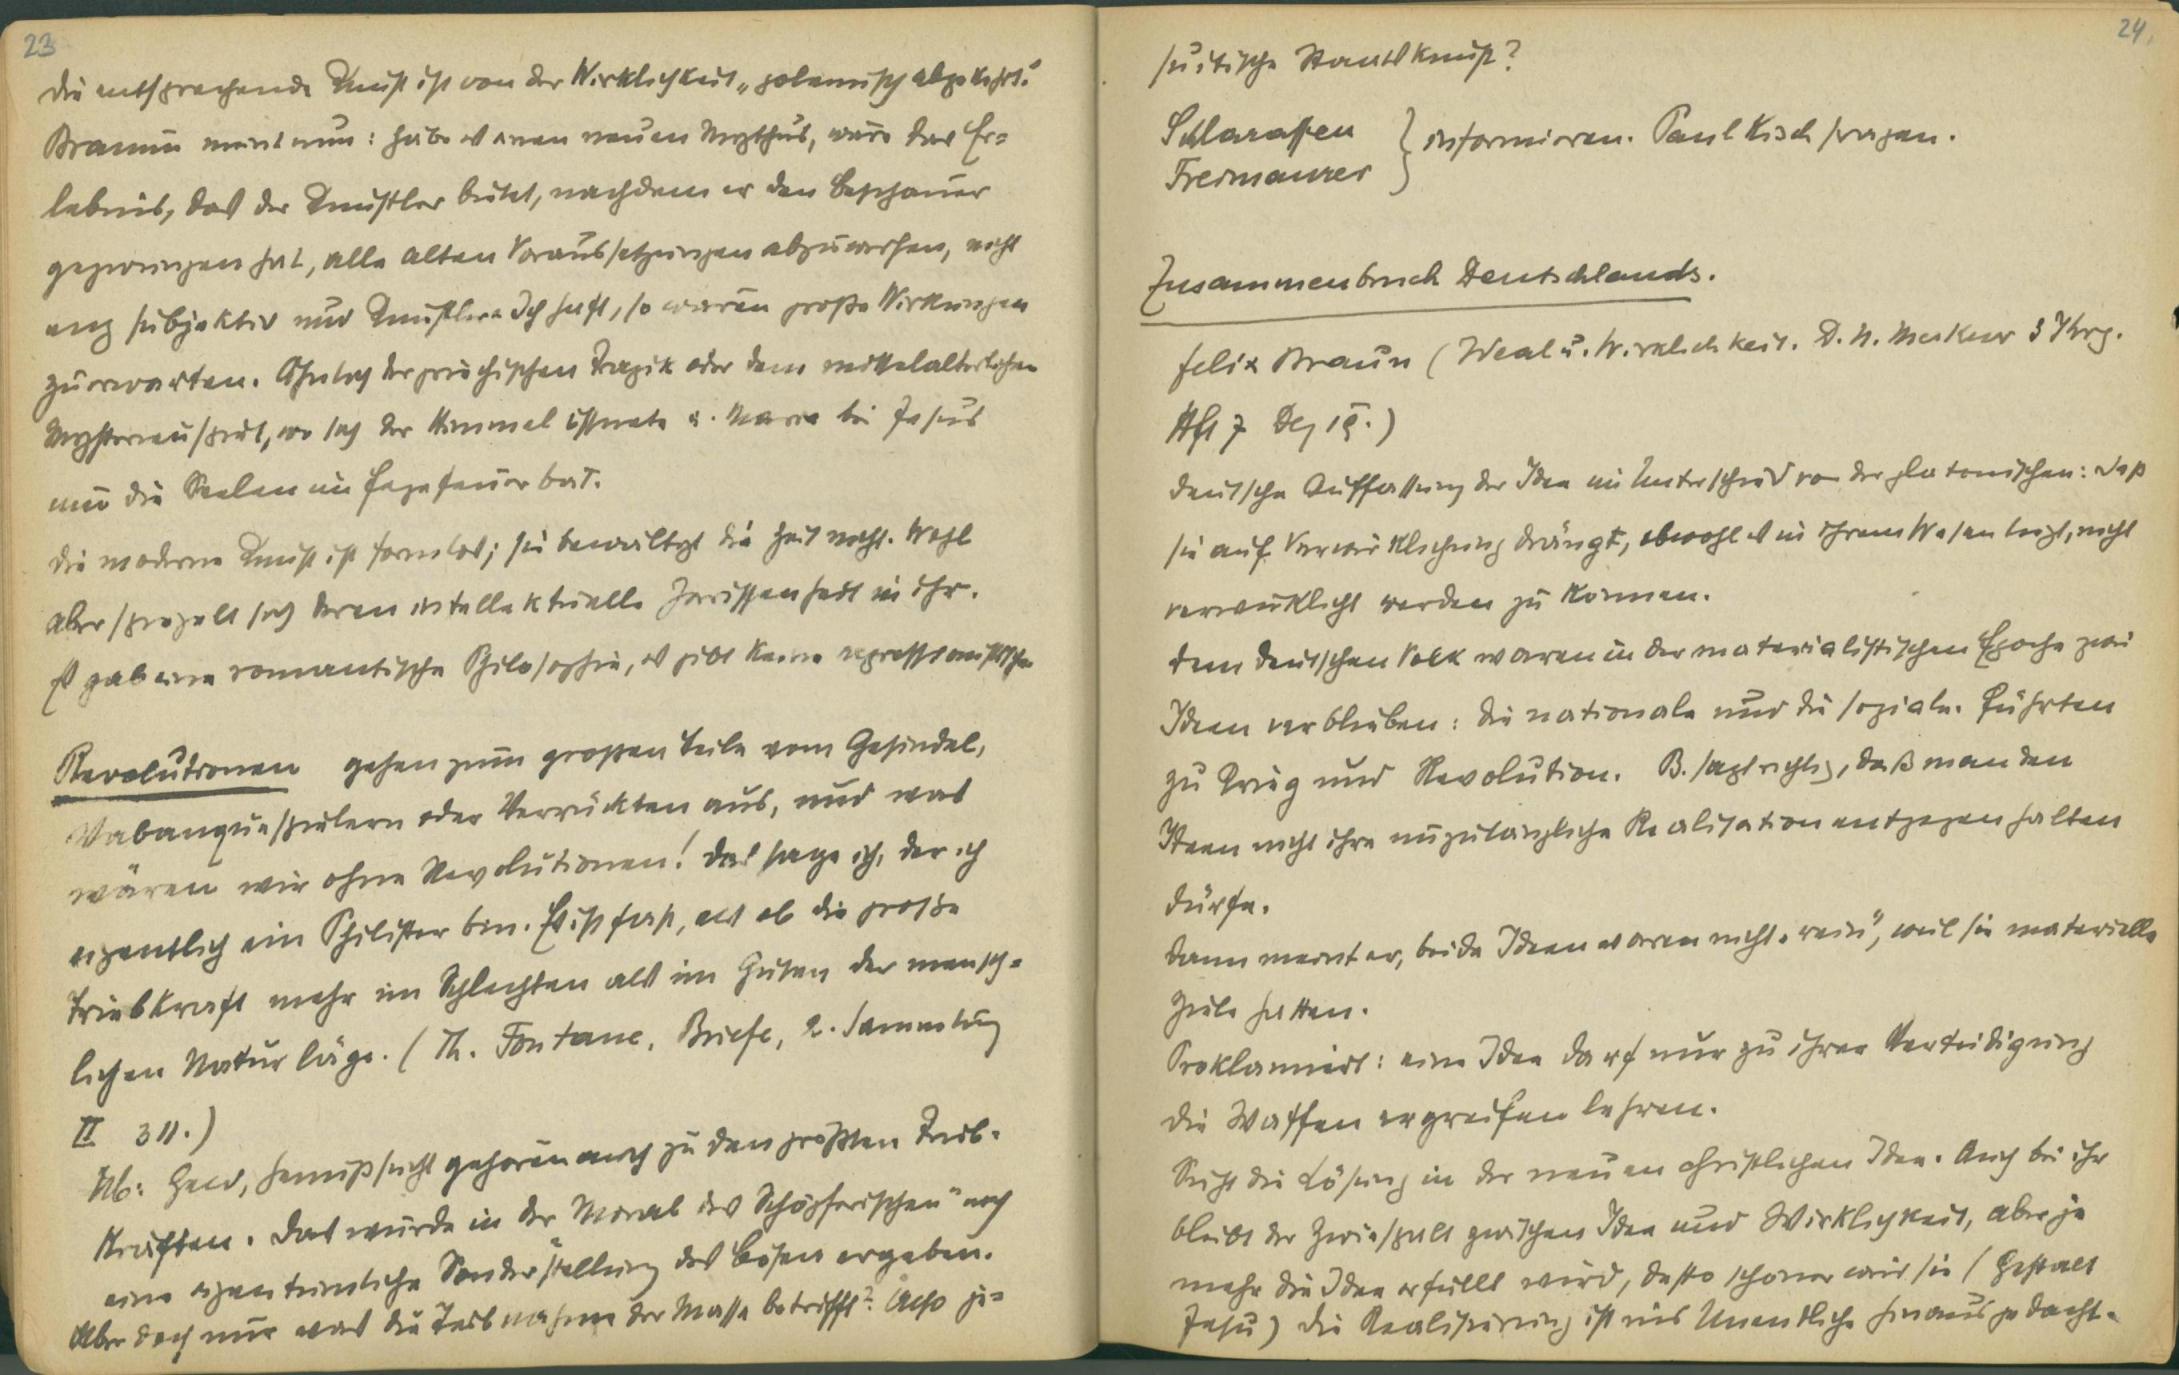 23
Die entsprechende Kunst ist von der Wirklichkeit „polemisch abgekehrt."
Braun meint nun: gäbe es einen neuen Mythus, wäre das Er=
lebnis, das der Künstler bietet, nachdem er den Beschauer
gezwungen hat, alle alten Voraussetzungen abzuwerfen, nicht
eng subjektiv und Künstler-Ich haft, so wären große Wirkungen
zu erwarten. Ähnlich der griechischen Tragik oder dem mittelalterlichen
Mysterienspiel, wo sich der Himmel öffnete u. Maria bei Jesus
um die Seelen im Fegefeuer bat.
Die moderne Kunst ist formlos; sie bewältigt die Zeit nicht. Wohl
aber spiegelt sich deren intellektuelle Zerissenheit in ihr.
Es gab eine romantische Philosophie, es gibt keine expressionistische
Revolutionen gehen zum grossen Teile vom Gesindel,
Vabanquespielern oder Verrückten aus, und was
wären wir ohne Revolutionen! Das sage ich, der ich
eigentlich ein Philister bin. Es ist fast, als ob die große
Triebkraft mehr im Schlechten als im Guten der mensch=
lichen Natur läge. (Th. Fontane, Briefe, 2. Sammlung
II 311.)
Nb: Geld, Genußsucht gehören auch zu den größten Trieb-
kräften. Das würde in der „Moral des Schöpferischen" noch
eine eigentümliche Sonderstellung des Bösen ergeben.
Aber doch nur was die Teilnahme der Masse betrifft? Also je=
24.
suitische Staatskunst?
Schlaraffen
Freimaurer } informieren. Paul Kisch fragen.
Zusammenbruch Deutschlands.
Felix Braun (Ideal u. Wirklichkeit. D. N. Merkur 3 Jhrg.
Hft 7 Dez 19.)
Deutsche Auffassung der Idee im Unterschied von der platonischen: daß
sie auf Verwirklichung drängt, obwohl es in ihrem Wesen liegt, nicht
verwirklicht werden zu können.
Dem deutschen Volk waren in der materialistischen Epoche zwei
Ideen verblieben: die nationale und die soziale. Führten
zu Krieg und Revolution. B. sagt richtig, daß man den
Ideen nicht ihre unzulängliche Realisation entgegenhalten
dürfe.
Dann meint er, beide Ideen waren nicht „rein", weil sie materielle
Ziele hatten.
Proklamiert: eine Idee darf nur zu ihrer Verteidigung
die Waffen ergreifen lehren.
Sucht die Lösung in der neuen christlichen Idee. Auch bei ihr
bleibt der Zwiespalt zwischen Idee und Wirklichkeit, aber je
mehr die Idee erfüllt wird, desto schöner wird sie (Gestalt
Jesu) die Realisierung ist ins Unendliche hinaus gedacht.